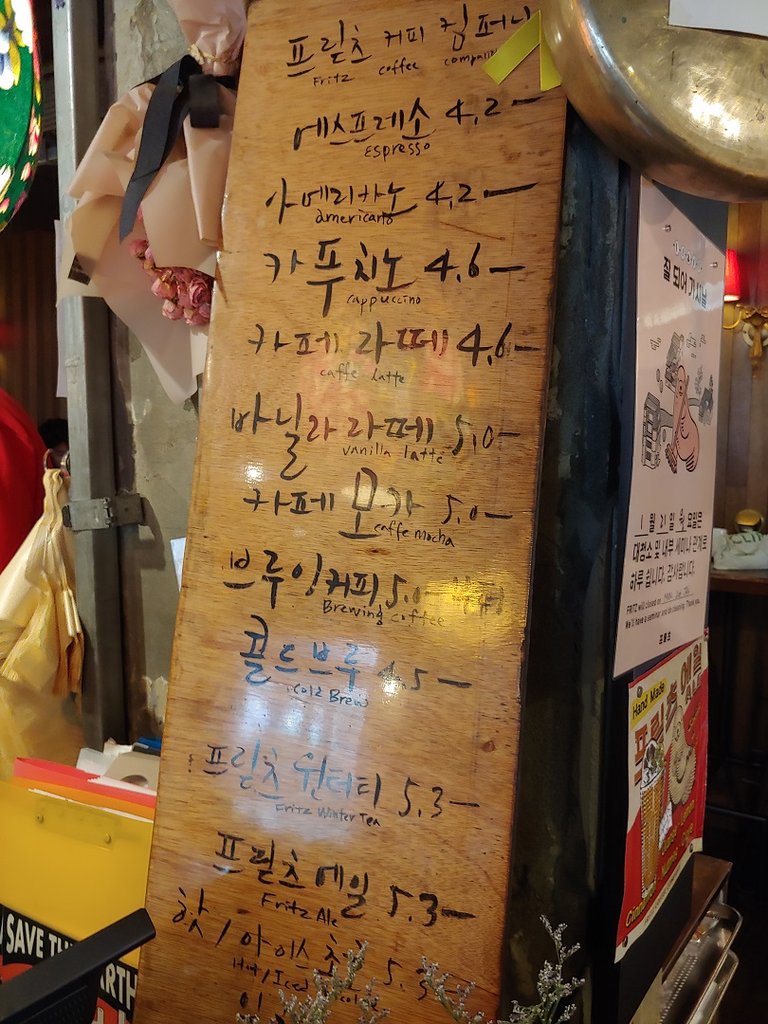 프릳츠 커피 컴퍼니
Fritz coffee company
에스프레소 4,2
Espresso
아메리카노 4,2
americano
카푸치노 4,6
cappuccino
카페 라떼 4,6
caffe latte
바닐라 라떼 5,0
vanilla latte
카페 모카 5,0
caffe mocha
브루잉커피 5.0
Brewing coffee
콜드브루 4,5
Cold Brew
프릳츠 윈터티 5,3
Fritz Winter Tea
프릳츠 에일 5.3
Fritz Ale
핫 / 아이스 5.3
Hot / Iced
잘 되어 가시나
1월 21일 월요일은
대청소 및 내부 세미나 관계로
하루 쉽니다. 감사합니다.
FRITZ will closed on
We'll have a seminar and do cleaning. Thank you.
프릳츠
Hand Made
프릳츠 에일
SAVE